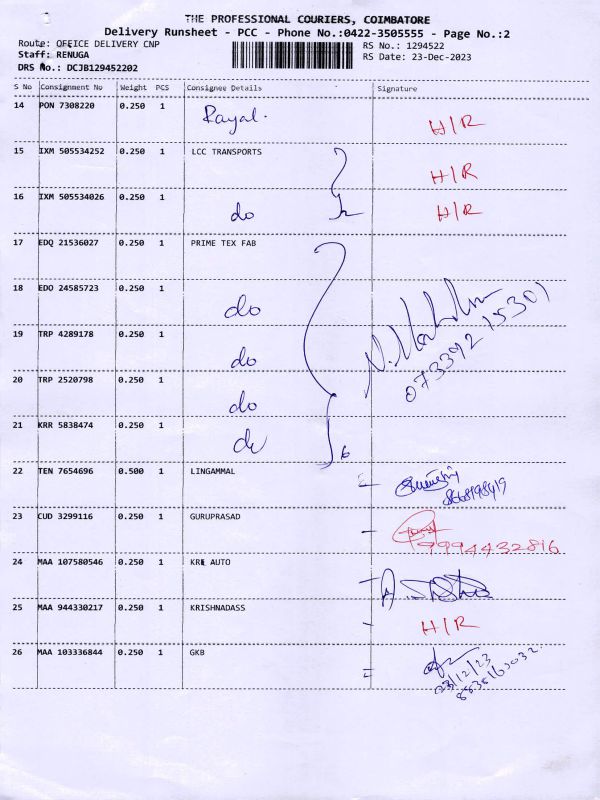 THE PROFESSIONAL COURIERS, COIMBATORE
Delivery Runsheet - PCC - Phone No.:0422-3505555 - Page No.:2
Route: OFFICE DELIVERY CNP
RS No.: 1294522
Staff: RENUGA
RS Date: 23-Dec-2023
DRS No.: DCJB129452202
S No Consignment No Weight PCS Consignee Details Signature
14 PON 7308220 0.250 1 Rayal. H/R
15 IXM 505534252 0.250 1 LCC TRANSPORTS H/R
16 IXM 505534026 0.250 1 do H/R
17 EDQ 21536027 0.250 1 PRIME TEX FAB
18 EDO 24585723 0.250 1 do
19 TRP 4289178 0.250 1 do
20 TRP 2520798 0.250 1 do
21 KRR 5838474 0.250 1 do
22 TEN 7654696 0.500 1 LINGAMMAL
23 CUD 3299116 0.250 1 GURUPRASAD 9994432816
24 MAA 107580546 0.250 1 KRL AUTO
25 MAA 944330217 0.250 1 KRISHNADASS H/R
26 MAA 103336844 0.250 1 GKB
23/12/23